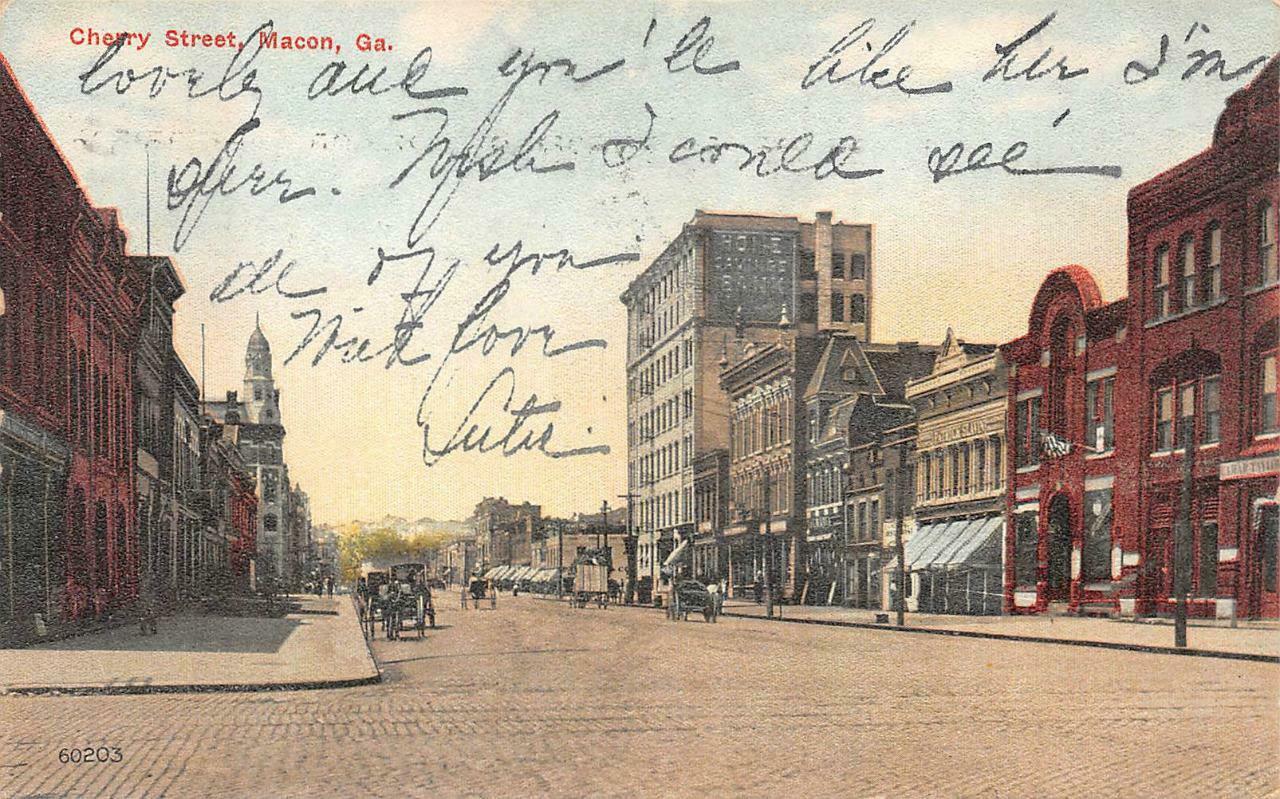 Cherry Street, Macon, Ga.
lovely and you'll like her I'm
sure. Wish I could see
all of you
With love
60203